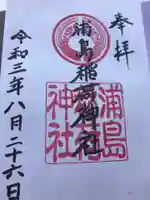 奉拝
浦島稲荷神社
浦島
神社
令和三年八月二十六日